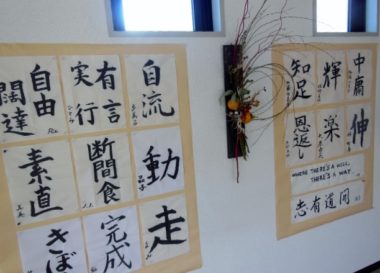 自流
有言
実行
自由
闊達
動
断間食
素直
走
完成
きぼ
中庸
輝
知足
伸
楽
恩返し
WHERE THERE'S A WILL,
THERE'S A WAY
同道有志